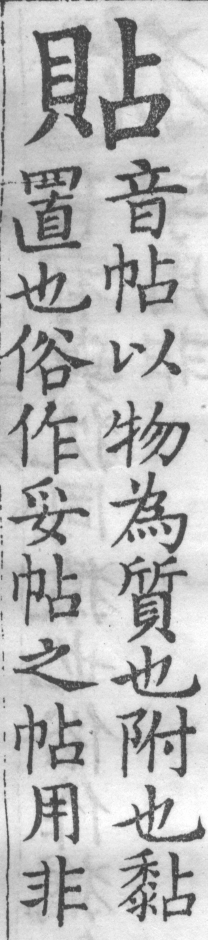 貼
音帖以物為質也附也黏
置也俗作妥帖之帖用非